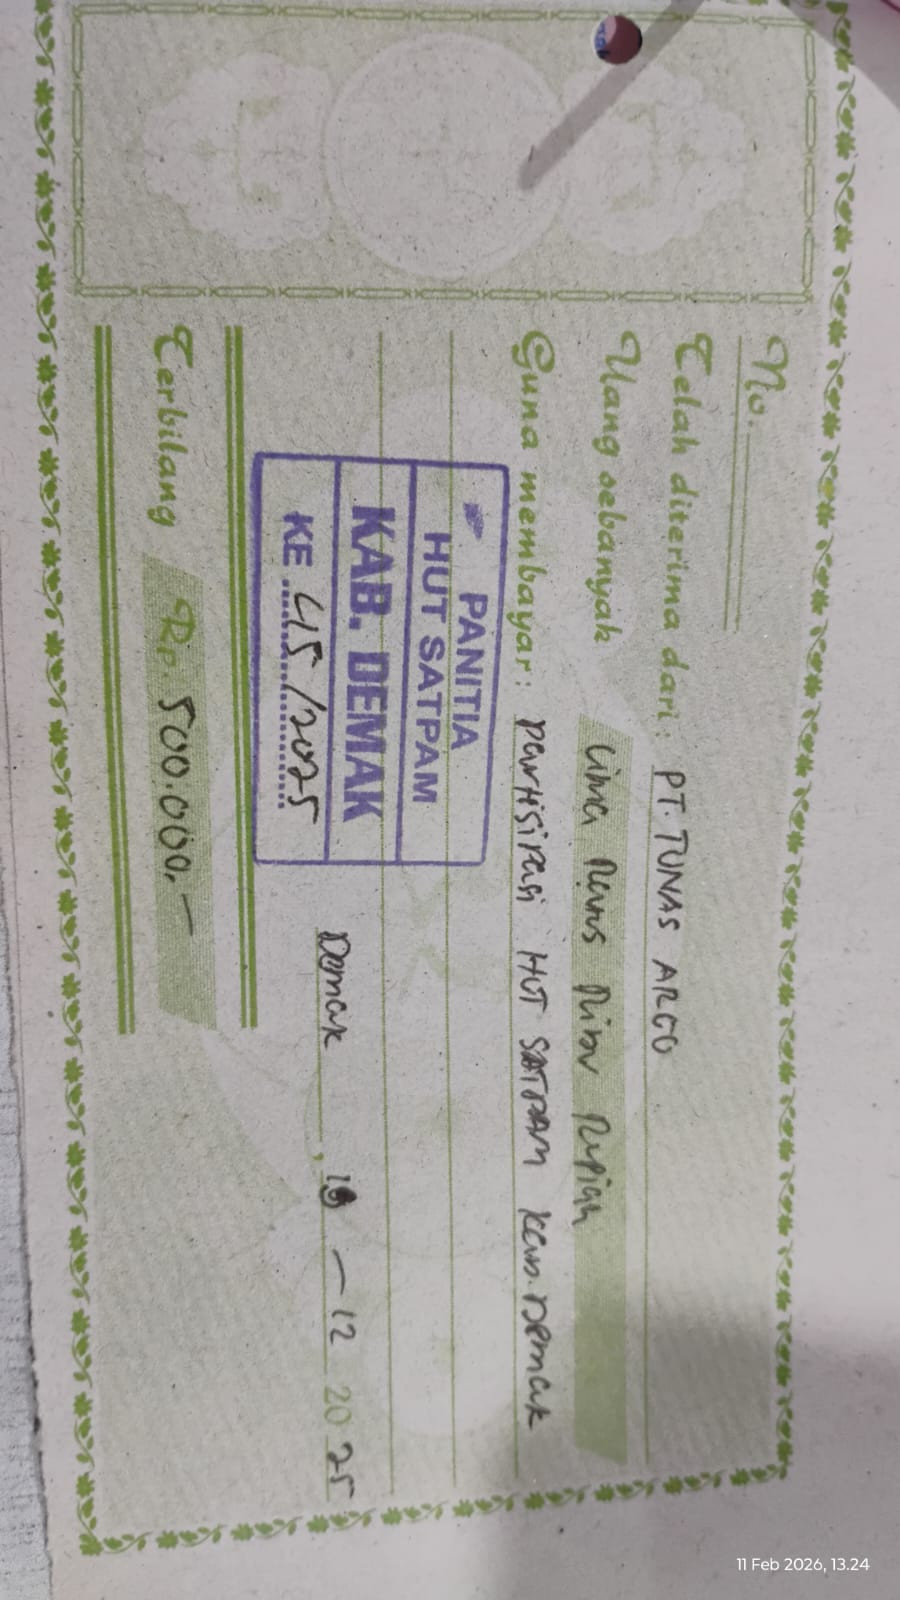 No.
Telah diterima dari : PT. TUNAS ARGO
Uang sebanyak Lima Ratus Ribu Rupiah
Guna membayar : Partisipasi HUT SATPAM Kab. Demak
PANITIA
HUT SATPAM
KAB. DEMAK
KE 45/2025
Demak, – 12 2025
Terbilang Rp. 500.000,–
11 Feb 2026, 13.24